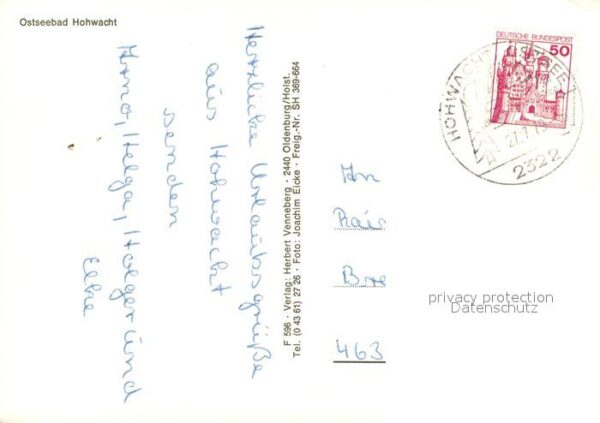 Ostseebad Hohwacht
Herzliche Urlaubsgrüße
aus Hohwacht
senden
Arno, Helga, Holger und
Elke
F 596 · Verlag: Herbert Venneberg · 2440 Oldenburg/Holst.
Tel. (0 43 61) 27 26 · Foto: Joachim Eicke · Freig.-Nr. SH 369-664
DEUTSCHE BUNDESPOST
50
HOHWACHT OSTSEE
2322
An
463
privacy protection
Datenschutz